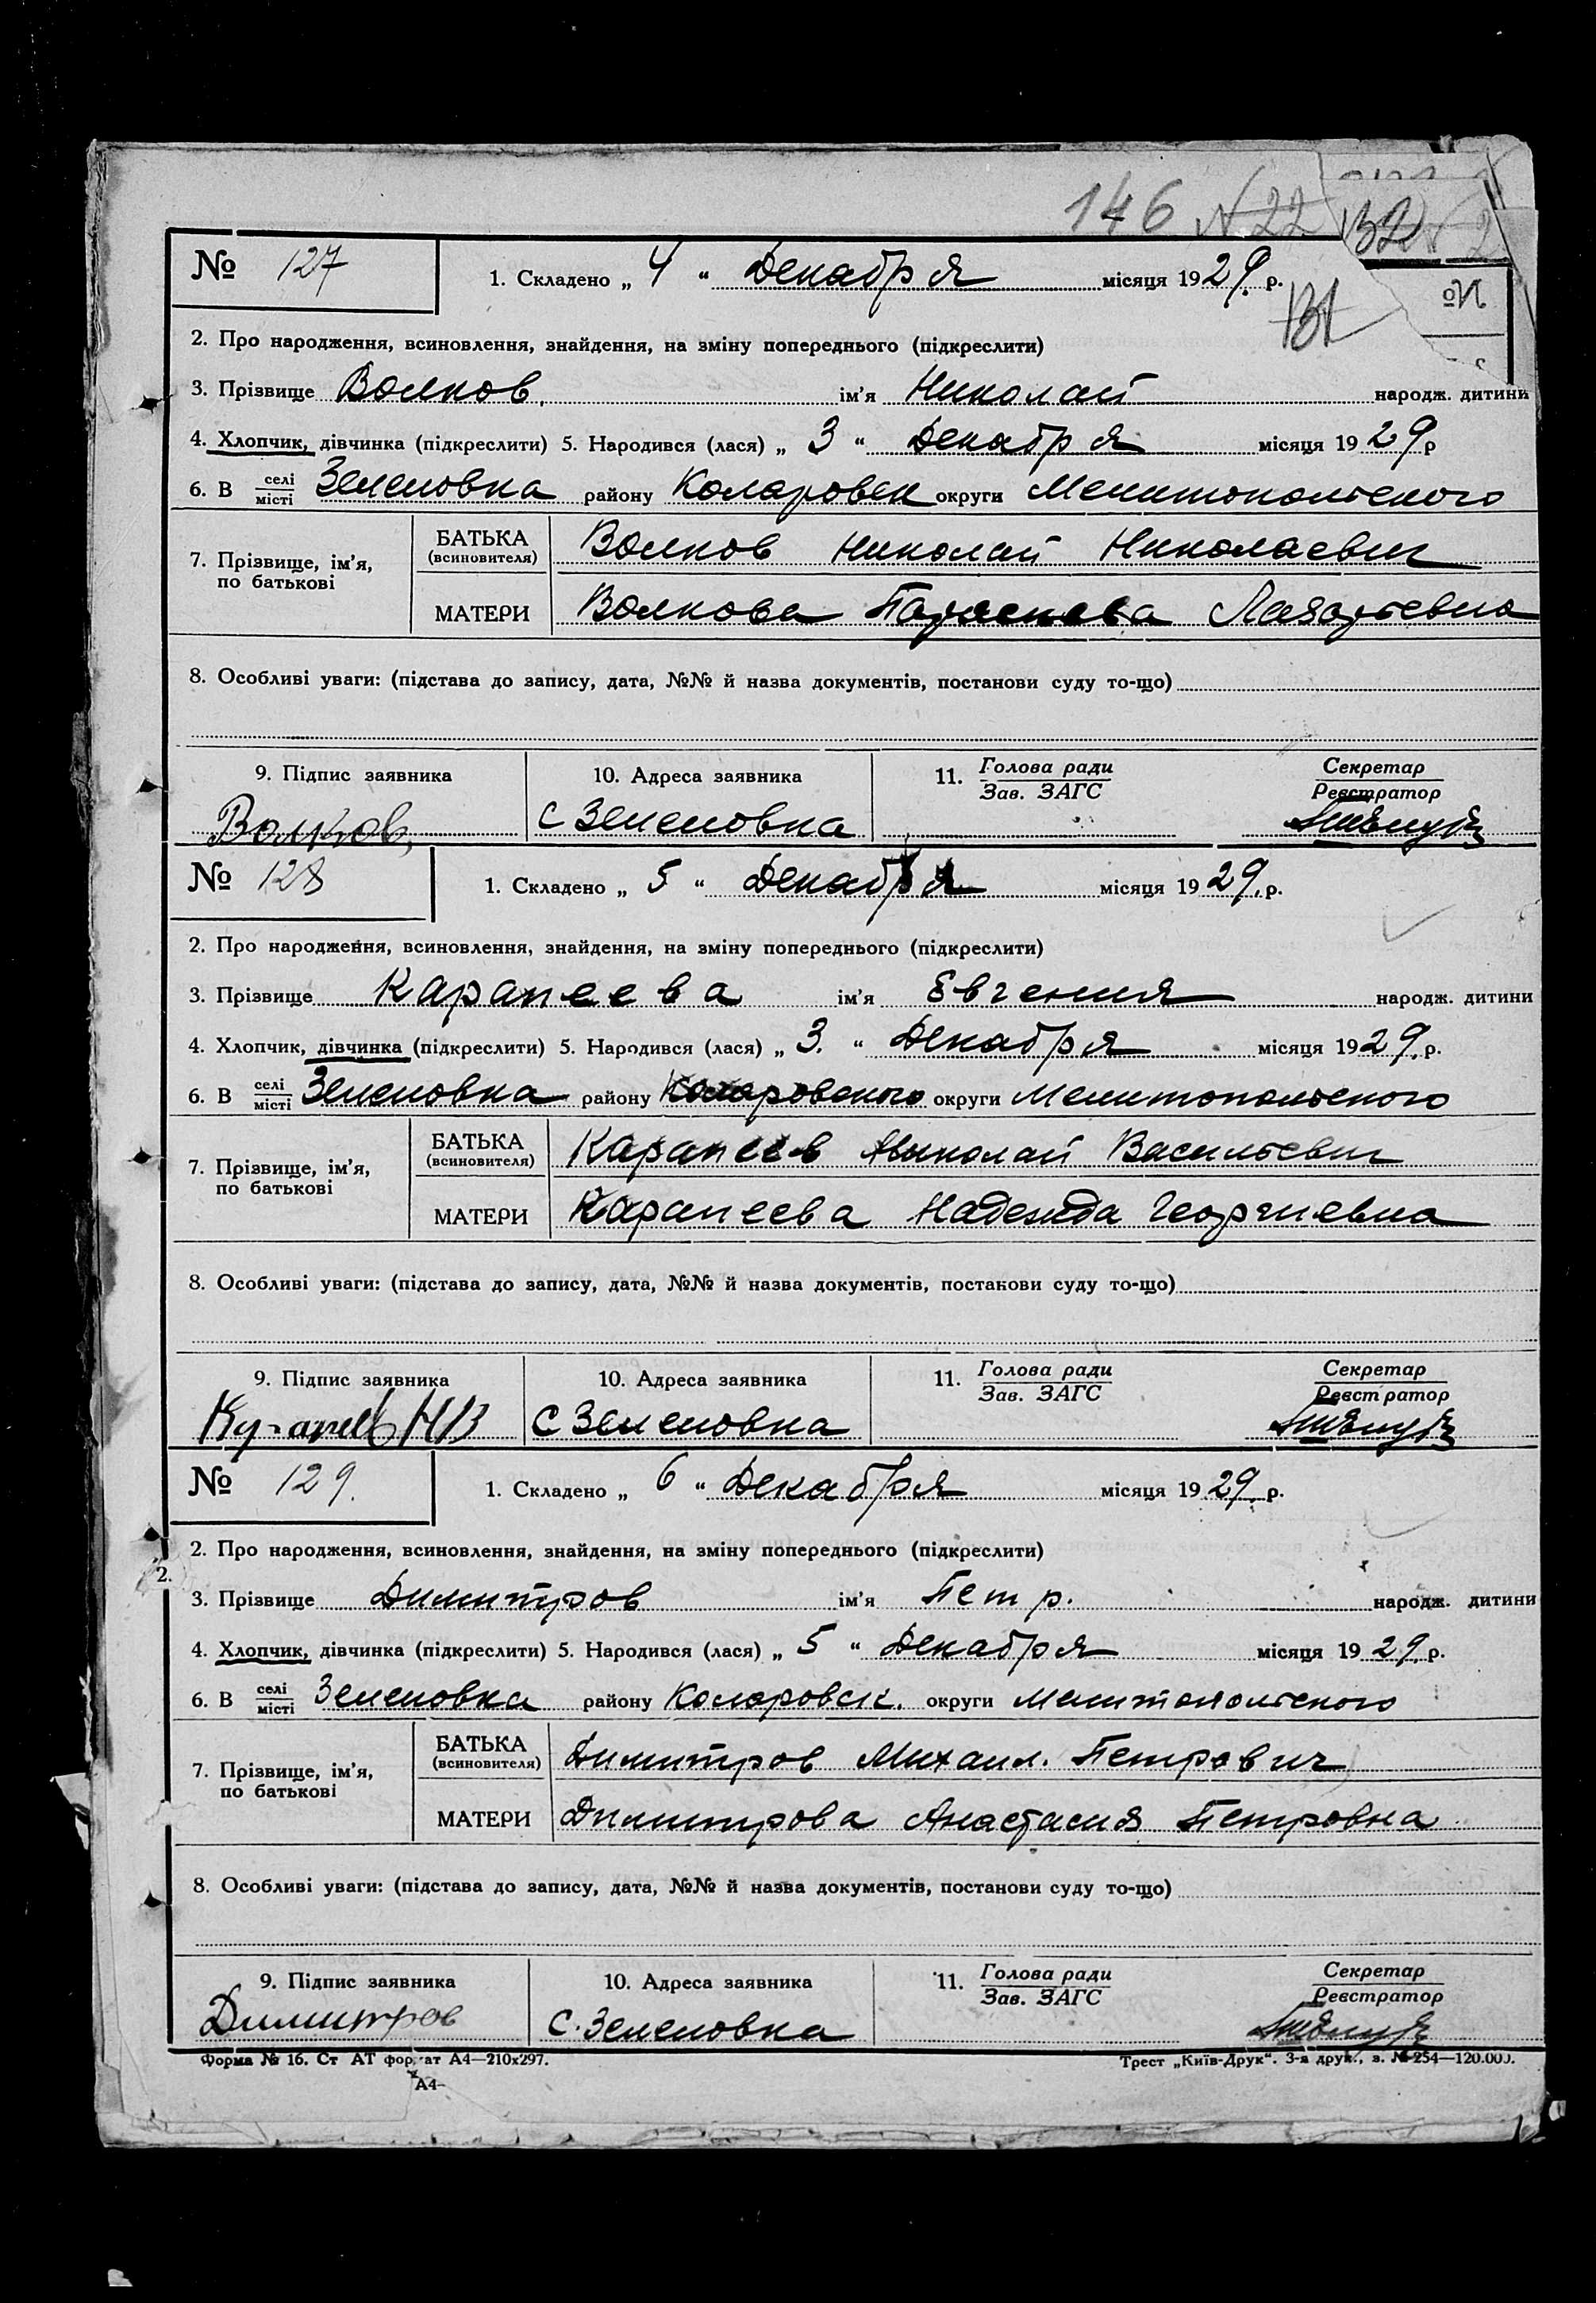 146 N 22 132
№ 127 1. Складено „ 4 “ Декабря місяця 1929. р.
131
2. Про народження, всиновлення, знайдення, на зміну попереднього (підкреслити)
3. Прізвище Волков. ім'я Николай народж. дитини
4. Хлопчик, дівчинка (підкреслити) 5. Народився (лася) „ 3 “ Декабря місяця 1929 р
6. В селі/місті Зеленовка району Коларовск округи Мелитопольского
7. Прізвище, ім'я, по батькові БАТЬКА (всиновителя) Волков Николай Николаевич
МАТЕРИ Волкова Лазарьевна
8. Особливі уваги: (підстава до запису, дата, №№ й назва документів, постанови суду то-що)
9. Підпис заявника 10. Адреса заявника 11. Голова ради/Зав. ЗАГС Секретар/Реєстратор
Волков, С Зеленовка
№ 128 1. Складено „ 5 “ Декабря місяця 1929. р.
2. Про народження, всиновлення, знайдення, на зміну попереднього (підкреслити)
3. Прізвище Карапеева ім'я Евгения народж. дитини
4. Хлопчик, дівчинка (підкреслити) 5. Народився (лася) „ 3. “ Декабря місяця 1929. р.
6. В селі/місті Зеленовка району Коларовского округи Мелитопольского
7. Прізвище, ім'я, по батькові БАТЬКА (всиновителя) Карапеев Николай Васильевич
МАТЕРИ Карапеева Надежда Георгиевна
8. Особливі уваги: (підстава до запису, дата, №№ й назва документів, постанови суду то-що)
9. Підпис заявника 10. Адреса заявника 11. Голова ради/Зав. ЗАГС Секретар/Реєстратор
НВ С Зеленовка
№ 129. 1. Складено „ 6 “ Декабря місяця 1929. р.
2. Про народження, всиновлення, знайдення, на зміну попереднього (підкреслити)
2.
3. Прізвище Димитров ім'я Петр. народж. дитини
4. Хлопчик, дівчинка (підкреслити) 5. Народився (лася) „ 5 “ Декабря місяця 1929. р.
6. В селі/місті Зеленовка району Коларовск. округи Мелитопольского
7. Прізвище, ім'я, по батькові БАТЬКА (всиновителя) Димитров Михаил. Петрович
МАТЕРИ Димитрова Анастасия Петровна
8. Особливі уваги: (підстава до запису, дата, №№ й назва документів, постанови суду то-що)
9. Підпис заявника 10. Адреса заявника 11. Голова ради/Зав. ЗАГС Секретар/Реєстратор
Димитров С. Зеленовка
Форма № 16. Ст АТ формат А4—210х297. Трест „Київ-Друк“. 3-я друк., з. № 254—120.000.
А4-